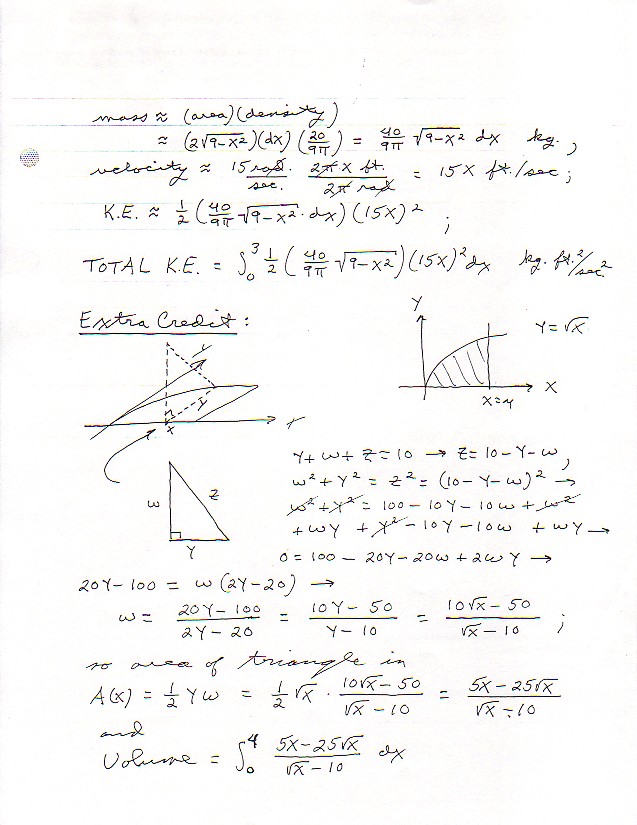 mass ≈ (area)(density)
≈ (2√9-x²)(dx)(20/9π) = 40/9π √9-x² dx kg.,
velocity ≈ 15 rad./sec. 2π x ft./2π rad = 15x ft./sec;
K.E. ≈ 1/2 (40/9π √9-x² · dx)(15x)² ;
TOTAL K.E. = ∫₀³ 1/2 (40/9π √9-x²)(15x)² dx kg. ft.²/sec²
Extra Credit:
Y
Y = √x
X
x=4
Y
x
w
z
Y
Y + w + z = 10 → z = 10 - Y - w,
w² + Y² = z² = (10 - Y - w)² →
w² + Y² = 100 - 10Y - 10w + w²
+ wY + Y² - 10Y - 10w + wY →
0 = 100 - 20Y - 20w + 2wY →
20Y - 100 = w (2Y - 20) →
w = 20Y - 100/2Y - 20 = 10Y - 50/Y - 10 = 10√x - 50/√x - 10 ;
so area of triangle is
A(x) = 1/2 Y w = 1/2 √x · 10√x - 50/√x - 10 = 5x - 25√x/√x - 10
and
Volume = ∫₀⁴ 5x - 25√x/√x - 10 dx